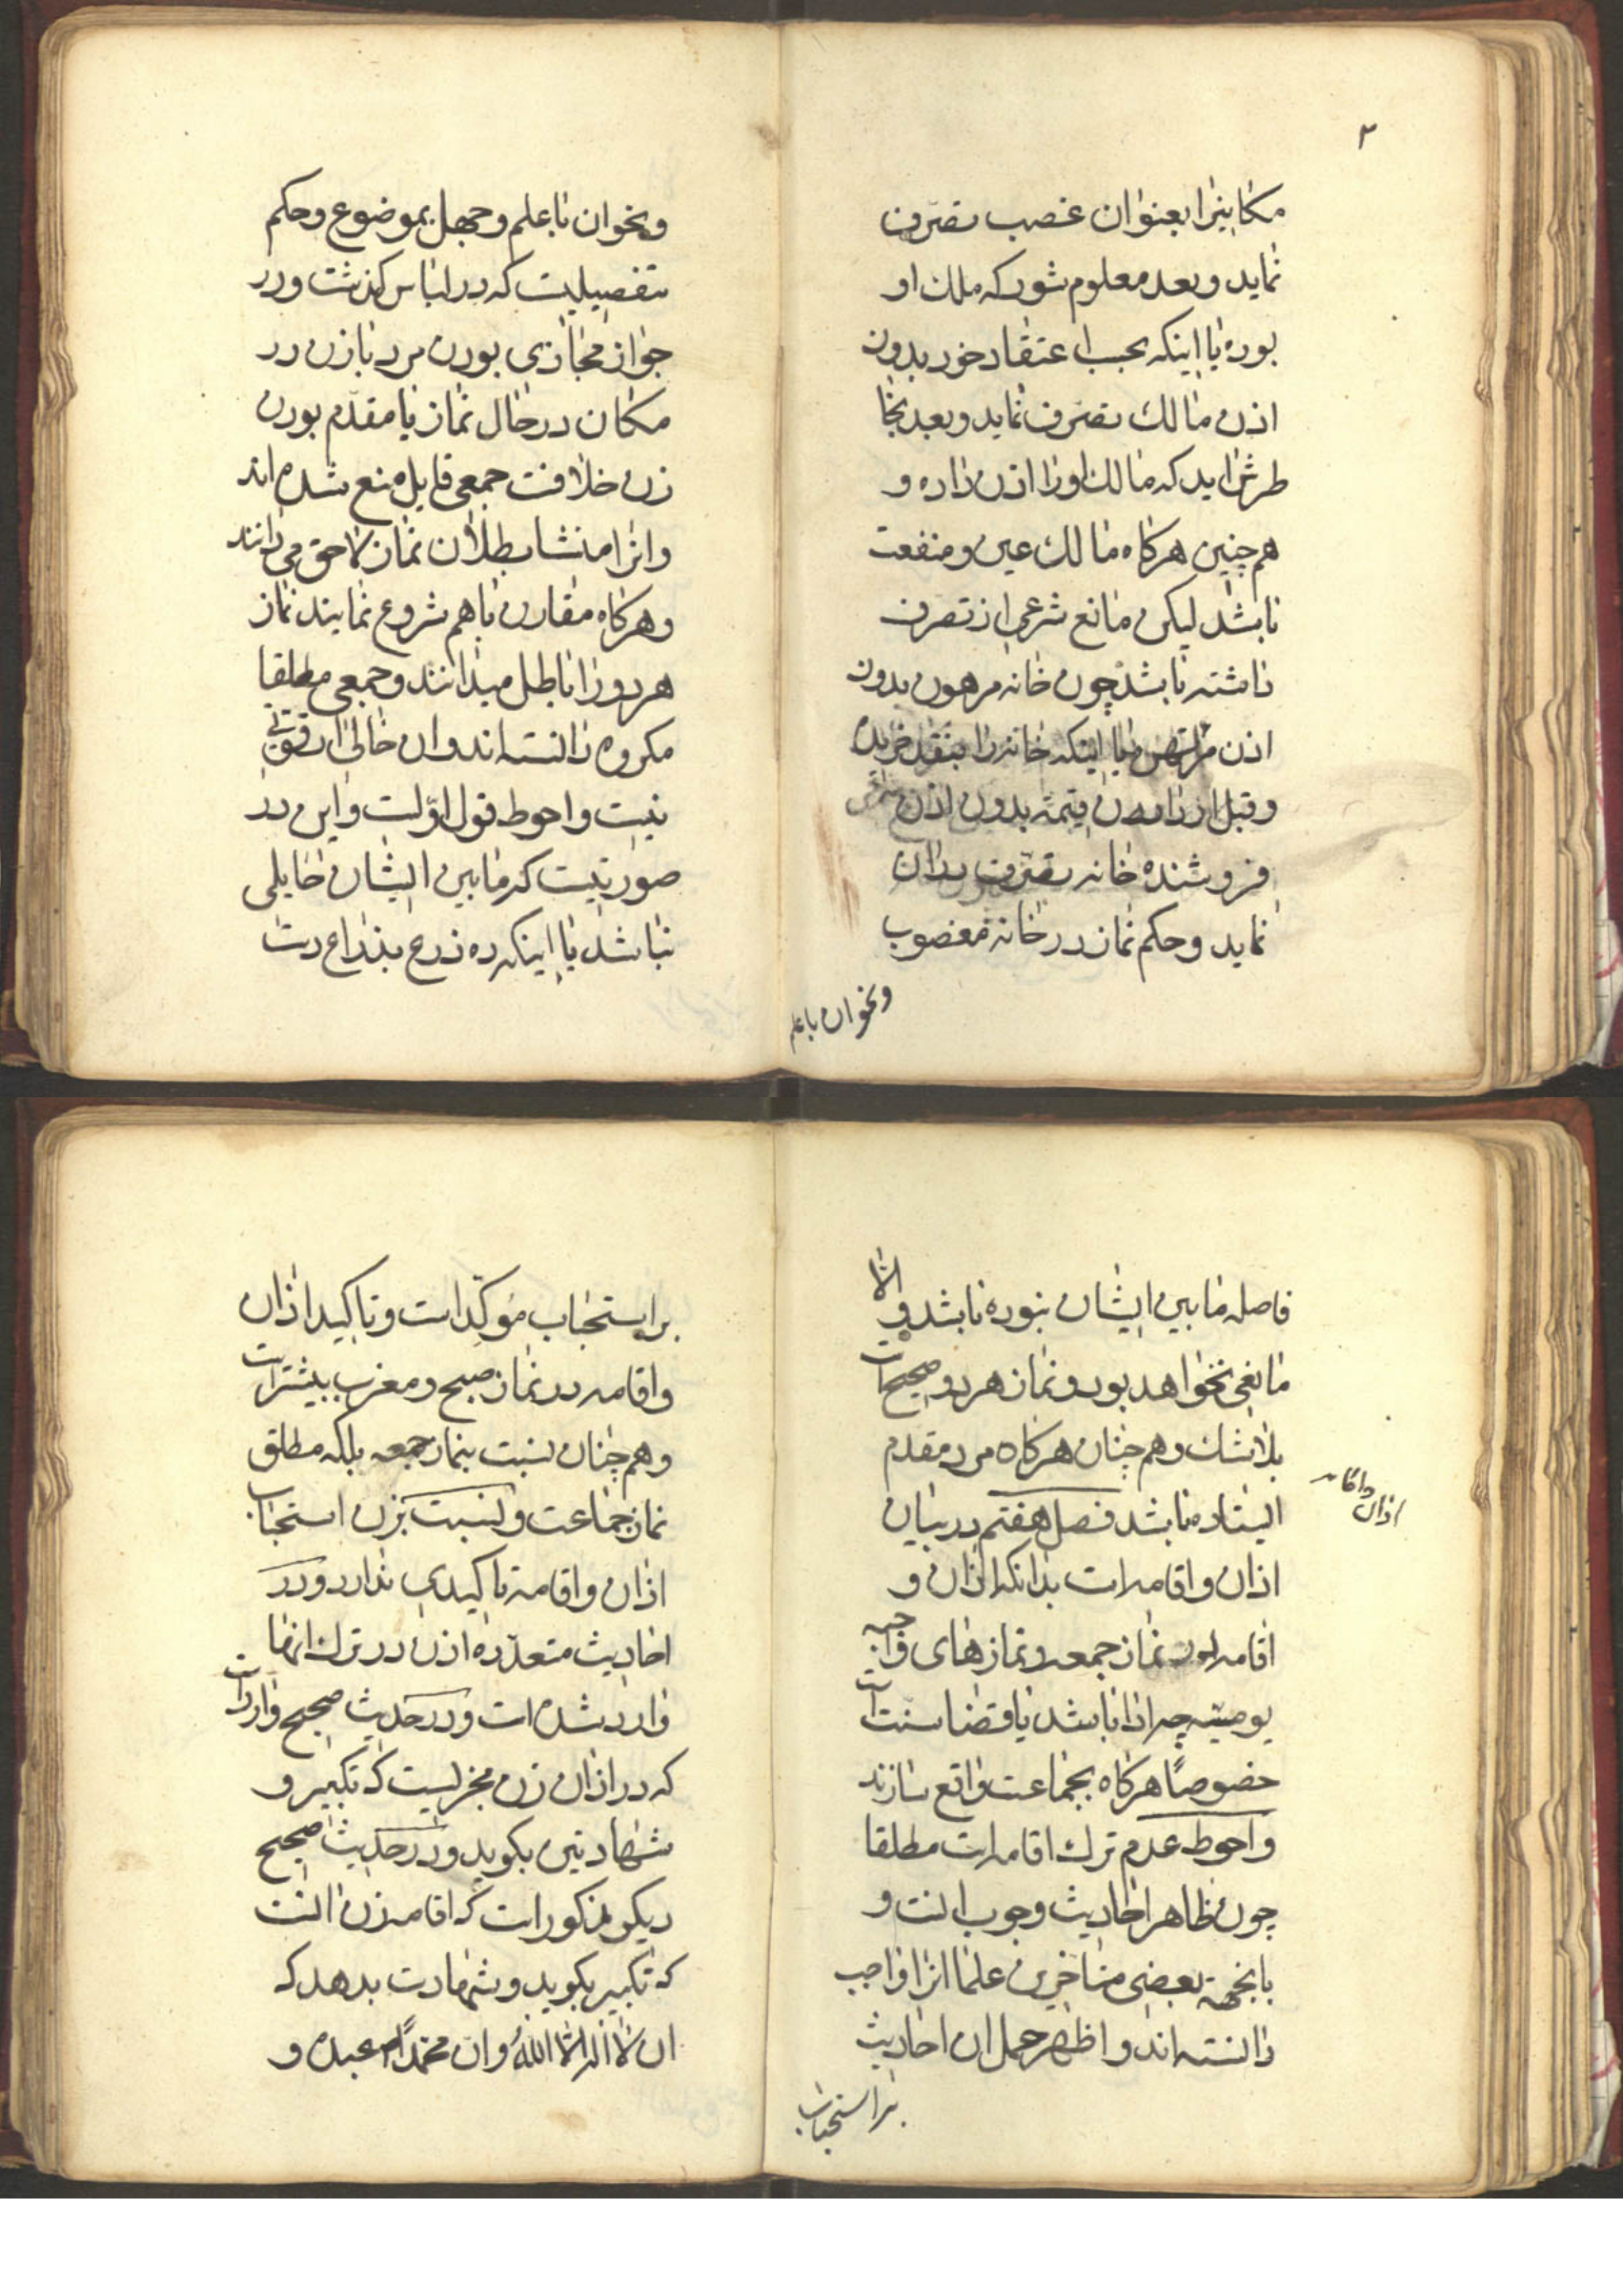 ۳
مکانیرا بعنوان غصب تصرف
نماید و بعد معلوم شود که ملک او
بوده یا اینکه بحسب اعتقاد خود بدون
اذن مالک تصرف نماید و بعد بخا
طرش اید که مالک اورا اذن داده و
هم چنین هرکاه مالک عین و منفعت
باشد لیکن مانع شرعی از تصرف
داشته باشد چون خانه مرهون بدون
اذن مرتهن یا اینکه خانه را بنقد خریده
و قبل از دادن قیمة بدون اذن شرعی
فروشنده خانه تصرف بدان
نماید و حکم نماز در خانه مغصوب
ونخوان با علم
ونخوان با علم و جهل بموضوع و حکم
بتفصیلیت که در لباس کذشت و در
جواز محاذی بودن مرد با زن در
مکان در حال نماز یا مقدّم بودن
زن خلافت جمعی قایل منع شده اند
و انرا منشا بطلان نماز لاحق می دانند
و هرکاه مقارن با هم شروع نمایند نماز
هر دو را باطل میدانند و جمعی مطلقا
مکروه دانسته اند و ان خالی از قوتی
نیست و احوط قول اوّلست و این در
صورتیست که مابین ایشان حایلی
نباشد یا اینکه ده ذرع بذراع دست
فاصله مابین ایشان نبوده باشد و الّا
مانعی نخواهد بود و نماز هر دو صحیح است
بلاشک و هم چنان هرکاه مرد مقدم
ایستاده باشد فصل هفتم در بیان
اذان و اقامه
اذان و اقامه است بدانکه اذان و
اقامه در نماز جمعه و نمازهای واجبه
یومیّه چه ادا باشد یا قضا سنت است
خصوصاً هرکاه بجماعت واقع سازند
و احوط عدم ترک اقامه است مطلقا
چون ظاهر احادیث وجوب انست و
باینجهة بعضی متاخرین علما انرا واجب
دانسته اند و اظهر حمل ان احادیث
بر استحباب
بر استحباب مؤکّد است و تاکید اذان
و اقامه در نماز صبح و مغرب بیشتر است
و هم چنان نسبت بنماز جمعه بلکه مطلق
نماز جماعت و نسبت بزن استحباب
اذان و اقامه تاکیدی ندارد و در
احادیث متعدّده اذن در ترک انها
وارد شده است و در حدیث صحیح وارد است
که در اذان زن مجزیست که تکبیر و
شهادتین بکوید و در حدیث صحیح
دیکر مذکور است که اقامه زن انست
که تکبیر بکوید و شهادت بدهد که
ان لا اله الّا اللهُ و انّ محمّداً عبده و